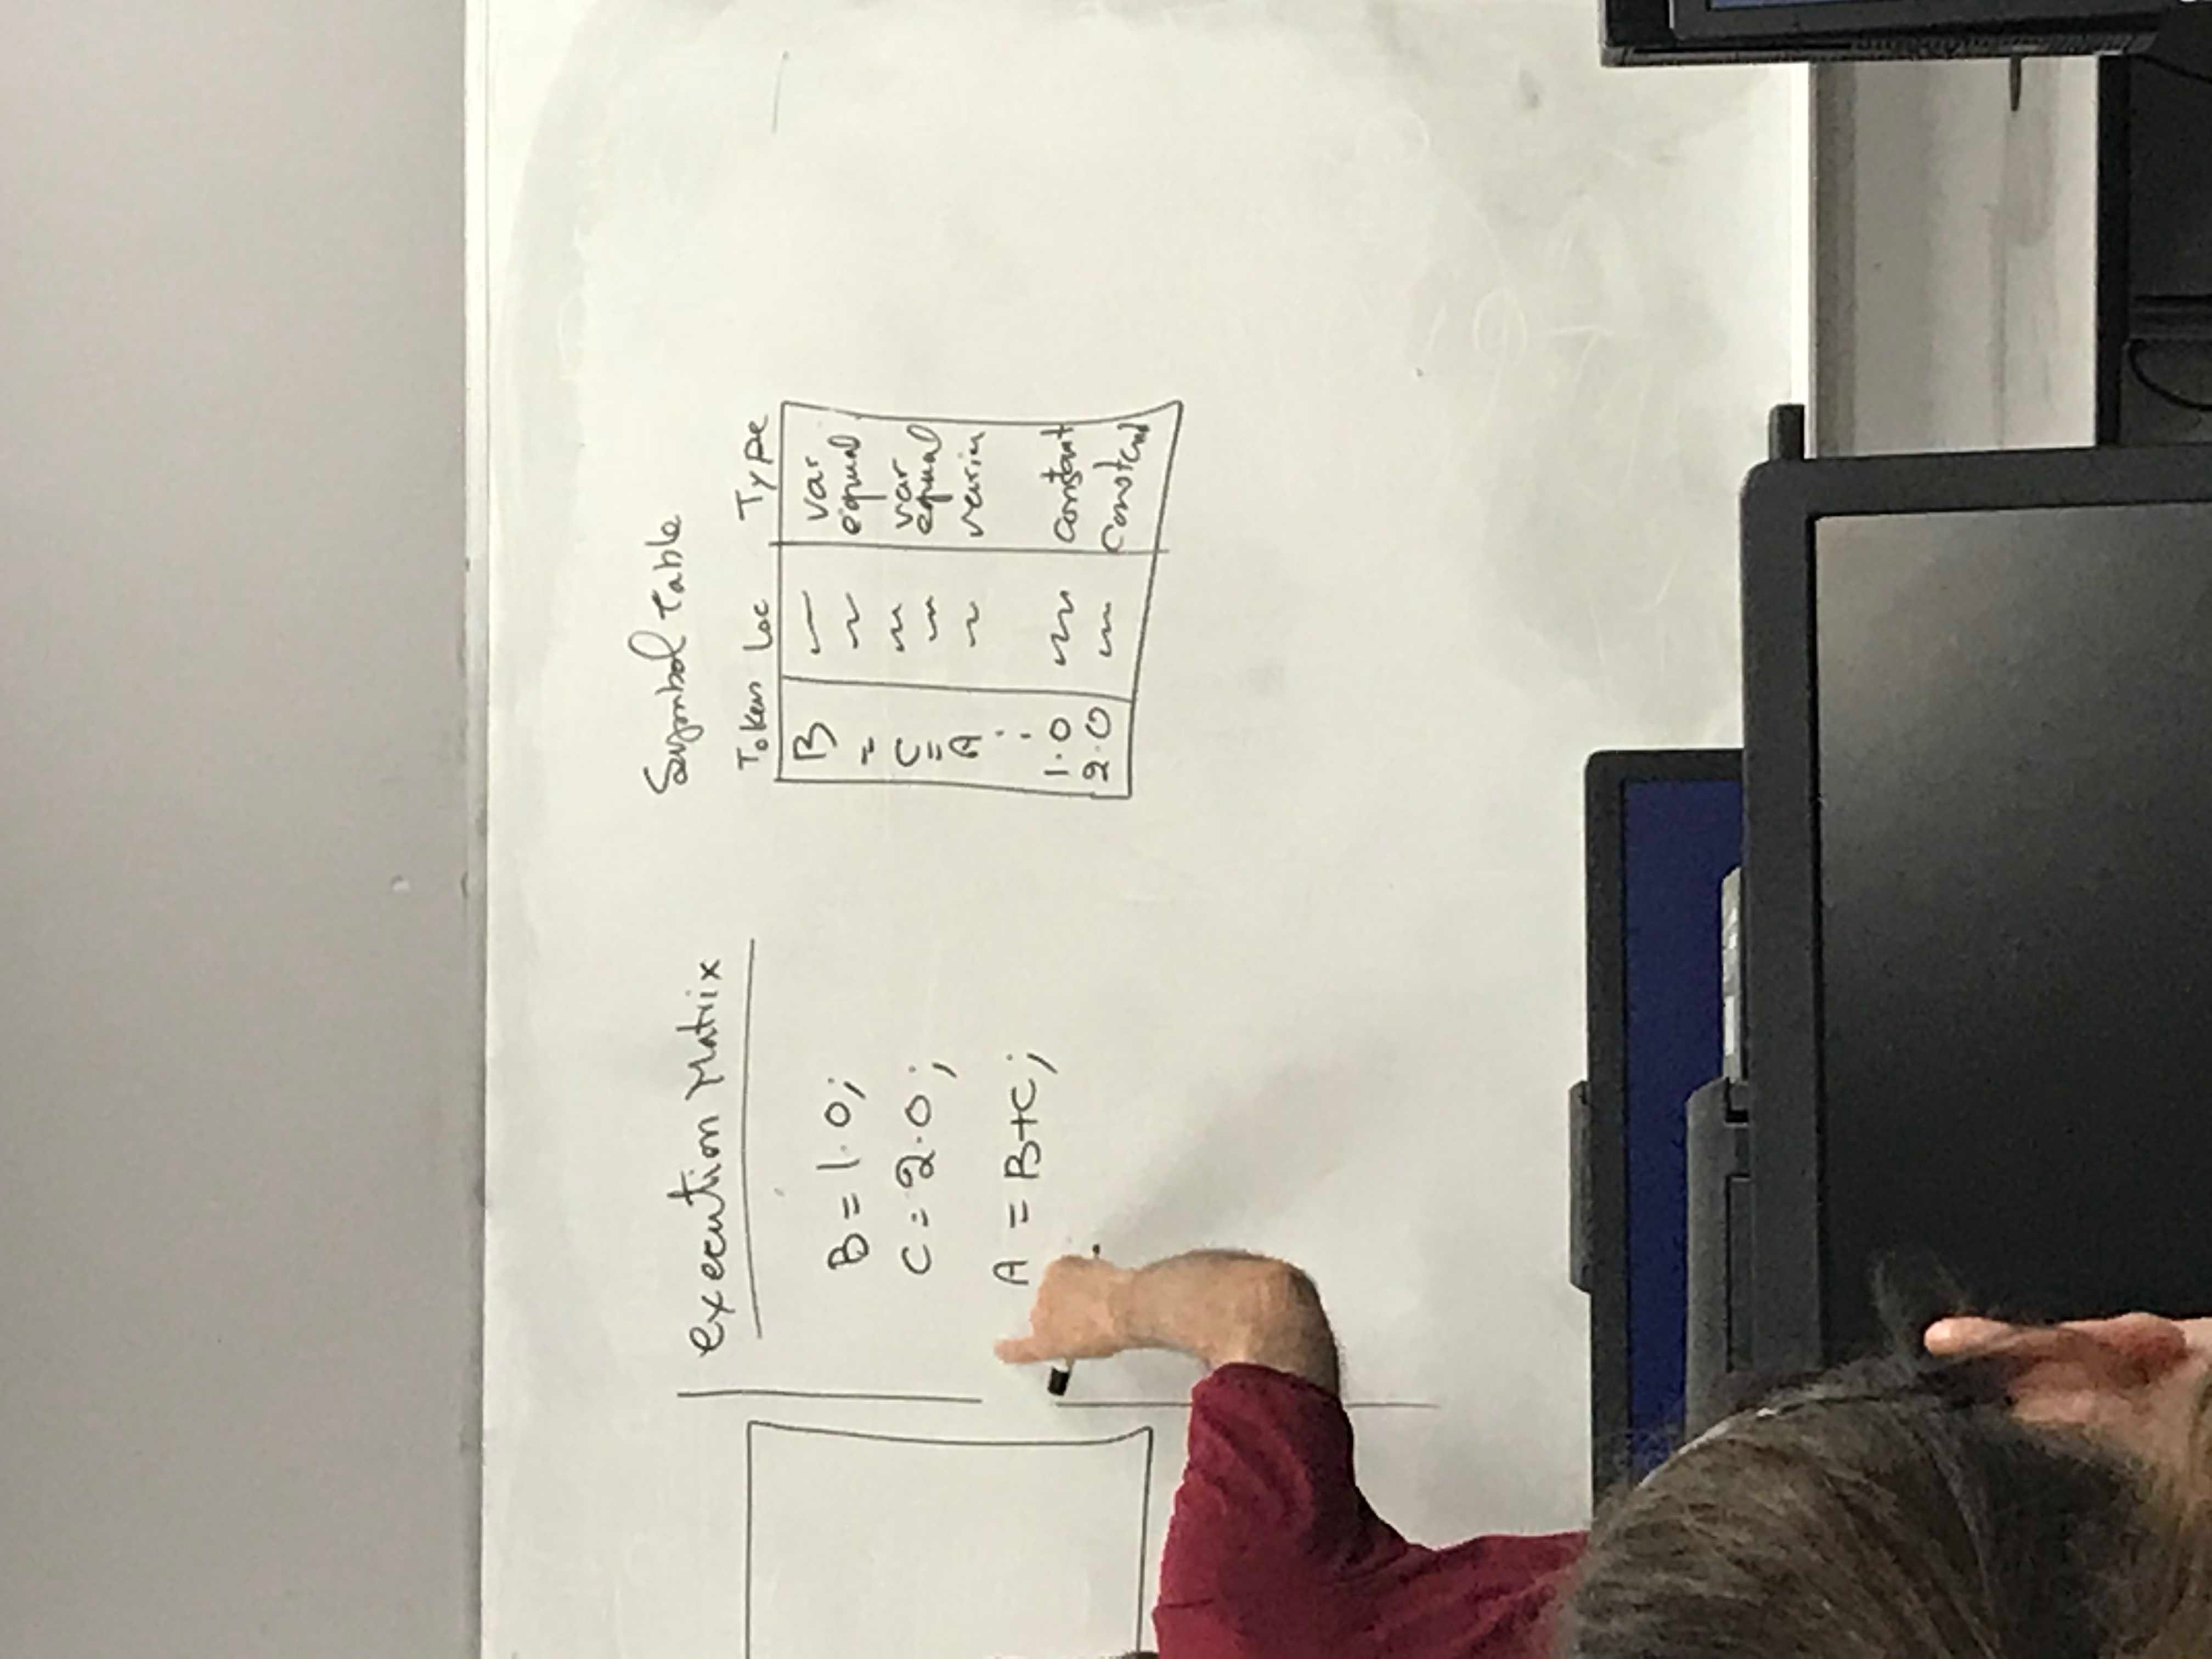 execution Matrix
B = 1.0;
C = 2.0;
A = B+C;
Symbol Table
Token Loc Type
B var
= equal
C var
= equal
A varia
:
1.0 constant
2.0 Constant